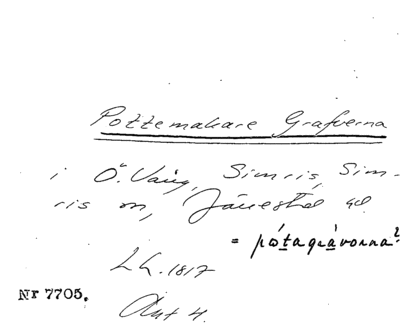 Pottemakare Grafverna
i Ö. Vång, Simris, Sim-
ris sn, Järrestad hd
= påtagrávorna?
LL. 1817
Akt 4.
Nr 7705.